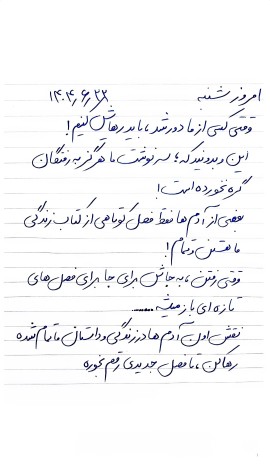 امروز شنبه ۱۴۰۴٫۶٫۲۲
وقتی کسی از ما دور شد، باید رهاش کنیم!
این و بدونید که؛ سرنوشت ما هرگز به رفتگان
گره نخورده است!
بعضی از آدم ها فقط فصل کوتاهی از کتاب زندگی
ما هستن و تمام!
وقتی رفتن، به جاش برای جا برای فصل های
تازه ای باز میشه.......
نقش اون آدم ها در زندگی و داستان ما تمام شده
رها کن، تا فصل جدیدی رقم بخوره